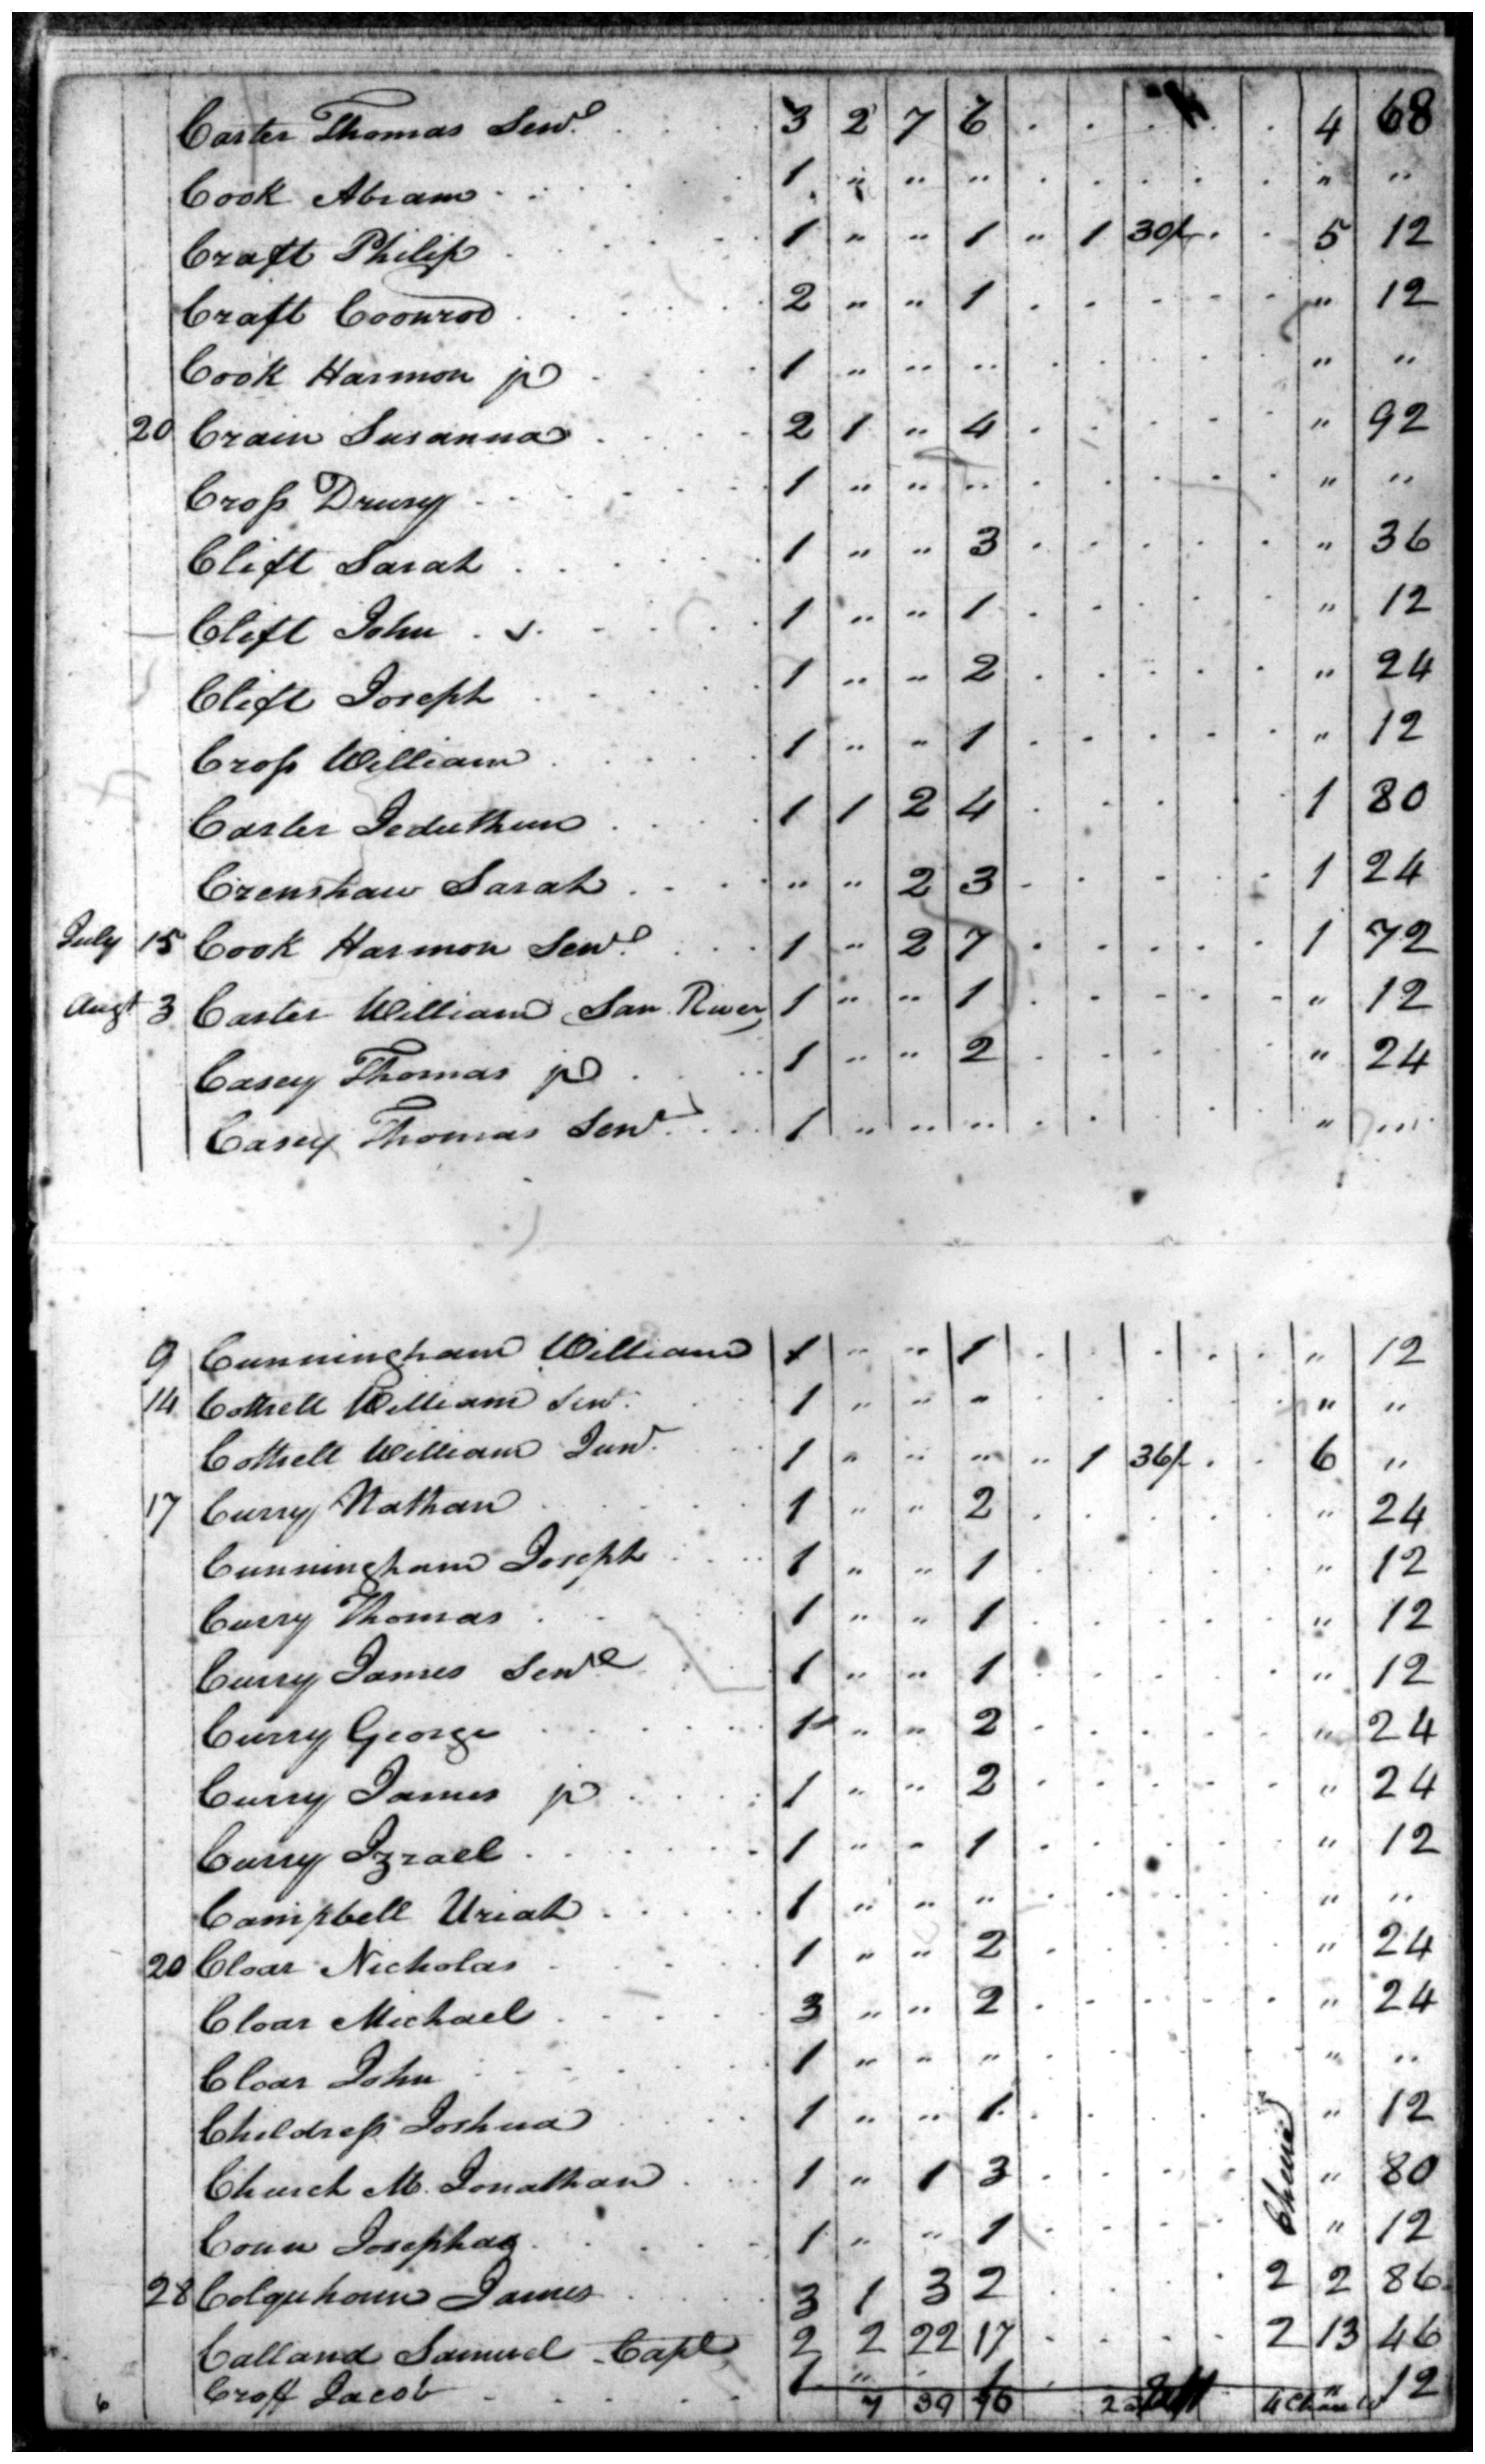 Carter Thomas Senr. 3 2 7 6 . . . . . 4 68
Cook Abram 1 " " " . . . . . " "
Craft Philip 1 " " 1 " 1 30/ . . 5 12
Craft Coonrod 2 " " 1 . . . . . " 12
Cook Harmon jr 1 " " " . . . . . " "
20 Crain Susanna 2 1 " 4 . . . . . " 92
Cross Drury 1 " " " . . . . . " "
Clift Sarah 1 " " 3 . . . . . " 36
Clift John . s. 1 " " 1 . . . . . " 12
Clift Joseph 1 " " 2 . . . . . " 24
Cross William 1 " " 1 . . . . . " 12
Carter Jeduthun 1 1 2 4 . . . . . 1 80
Crenshaw Sarah " " 2 3 . . . . . 1 24
July 15 Cook Harmon Senr. 1 " 2 7 . . . . . 1 72
Augt 3 Carter William San. River 1 " " 1 . . . . . " 12
Casey Thomas jr 1 " " 2 . . . . . " 24
Casey Thomas Senr. 1 " " " . . . . . " "
9 Cunningham William 1 " " 1 . . . . . " 12
14 Cottrell William Senr. 1 " " " . . . . . " "
Cottrell William Junr. 1 " " " " 1 36/ . . 6 "
17 Curry Nathan 1 " " 2 . . . . . " 24
Cunningham Joseph 1 " " 1 . . . . . " 12
Curry Thomas 1 " " 1 . . . . . " 12
Curry James Senr 1 " " 1 . . . . . " 12
Curry George 1 " " 2 . . . . . " 24
Curry James jr 1 " " 2 . . . . . " 24
Curry Izrael 1 " " 1 . . . . . " 12
Campbell Uriah 1 " " " . . . . . " "
20 Cloar Nicholas 1 " " 2 . . . . . " 24
Cloar Michael 3 " " 2 . . . . . " 24
Cloar John 1 " " " . . . . . " "
Childress Joshua 1 " " 1 . . . . . " 12
Church M. Jonathan 1 " 1 3 . . . . " 80
Conn Josephas 1 " " 1 . . . . " 12
28 Colquhoun James 3 1 3 2 . . . . 2 2 86
Calland Samuel Capt 2 2 22 17 . . . . 2 13 46
Croff Jacob 1 " " 1 " 12
6 7 39 76 2 4